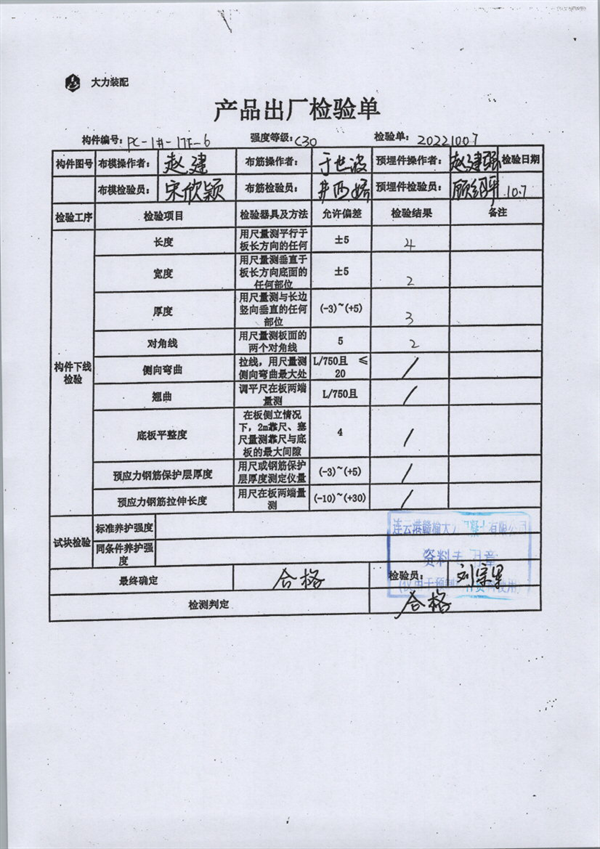 大力装配
产品出厂检验单
构件编号: PC-1#-17F-6 强度等级: C30 检验单: 20221007
构件图号 布模操作者: 赵建 布筋操作者: 于世波 预埋件操作者: 赵建强 检验日期
布模检验员: 宋欣颖 布筋检验员: 预埋件检验员: 10.7
检验工序 检验项目 检验器具及方法 允许偏差 检验结果 备注
构件下线检验
长度 用尺量测平行于板长方向的任何 ±5 4
宽度 用尺量测垂直于板长方向底面的任何部位 ±5 2
厚度 用尺量测与长边竖向垂直的任何部位 (-3)~(+5) 3
对角线 用尺量测板面的两个对角线 5 2
侧向弯曲 拉线,用尺量测侧向弯曲最大处 L/750且 ≤20 /
翘曲 调平尺在板两端量测 L/750且 /
底板平整度 在板侧立情况下,2m靠尺、塞尺量测靠尺与底板的最大间隙 4 /
预应力钢筋保护层厚度 用尺或钢筋保护层厚度测定仪量 (-3)~(+5) /
预应力钢筋拉伸长度 用尺在板两端量测 (-10)~(+30) /
试块检验 标准养护强度
同条件养护强度
资料专用章
最终确定 合格 检验员:
检测判定 合格